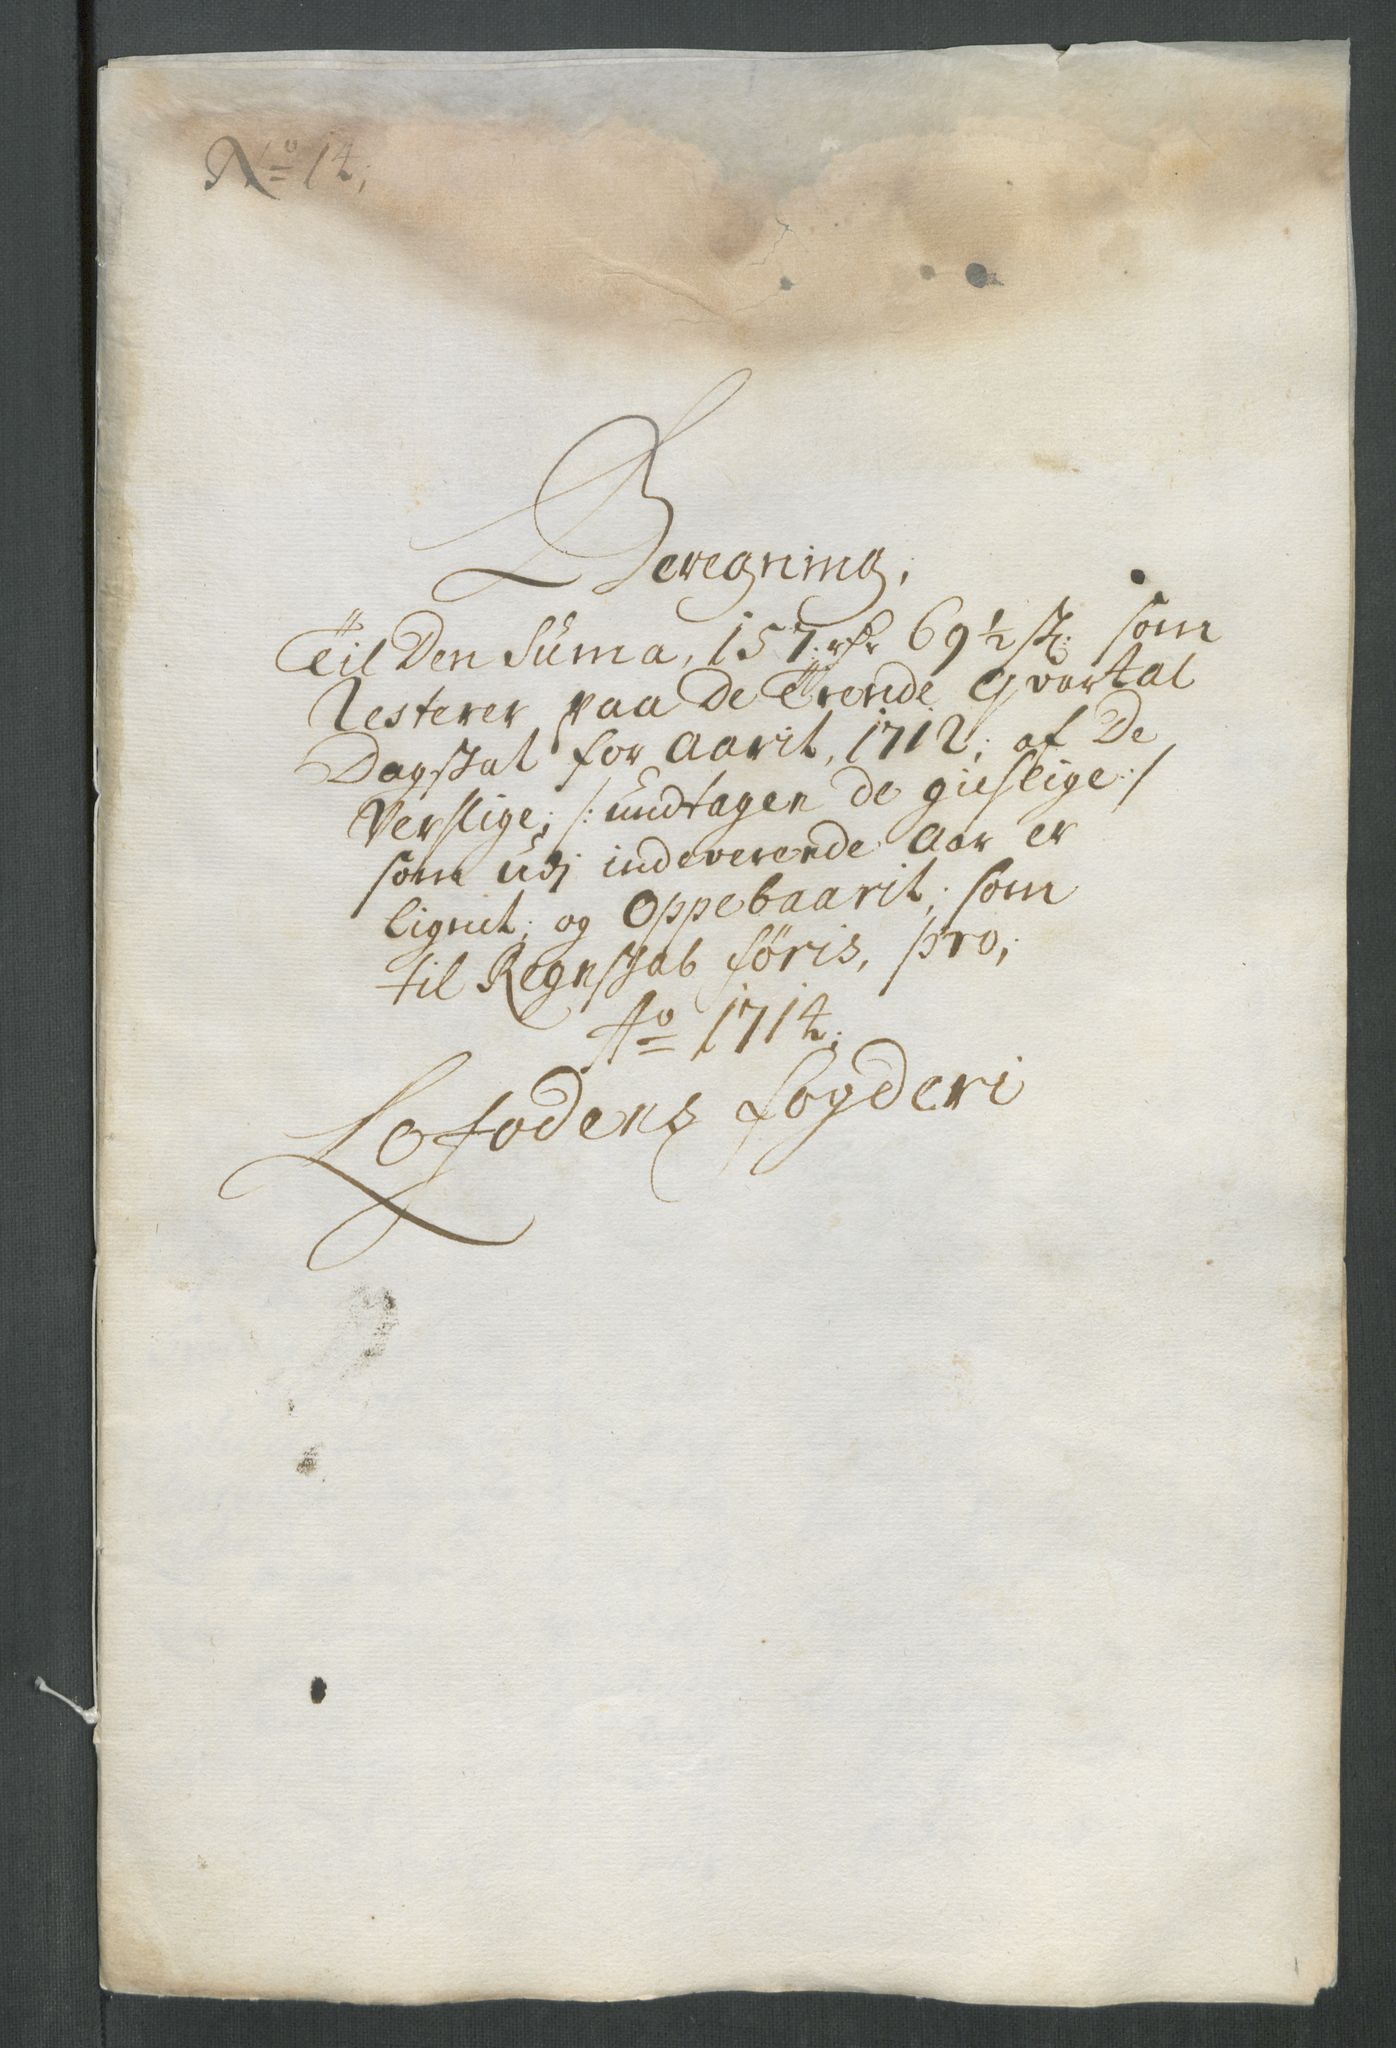 No 14;
Beregning,
Til Den Suma, 157. rdr 69 ½ sk: som
Resterer paa De Trende qvartal
Dagskat for Aarit, 1712; af De
Verslige; /: undtagen de giestlige :/
som udj indeverende Aar er
lignet; og Oppebaarit; som
til Regnskab føris, pro;
Ao 1714;
Lofodens fogderi